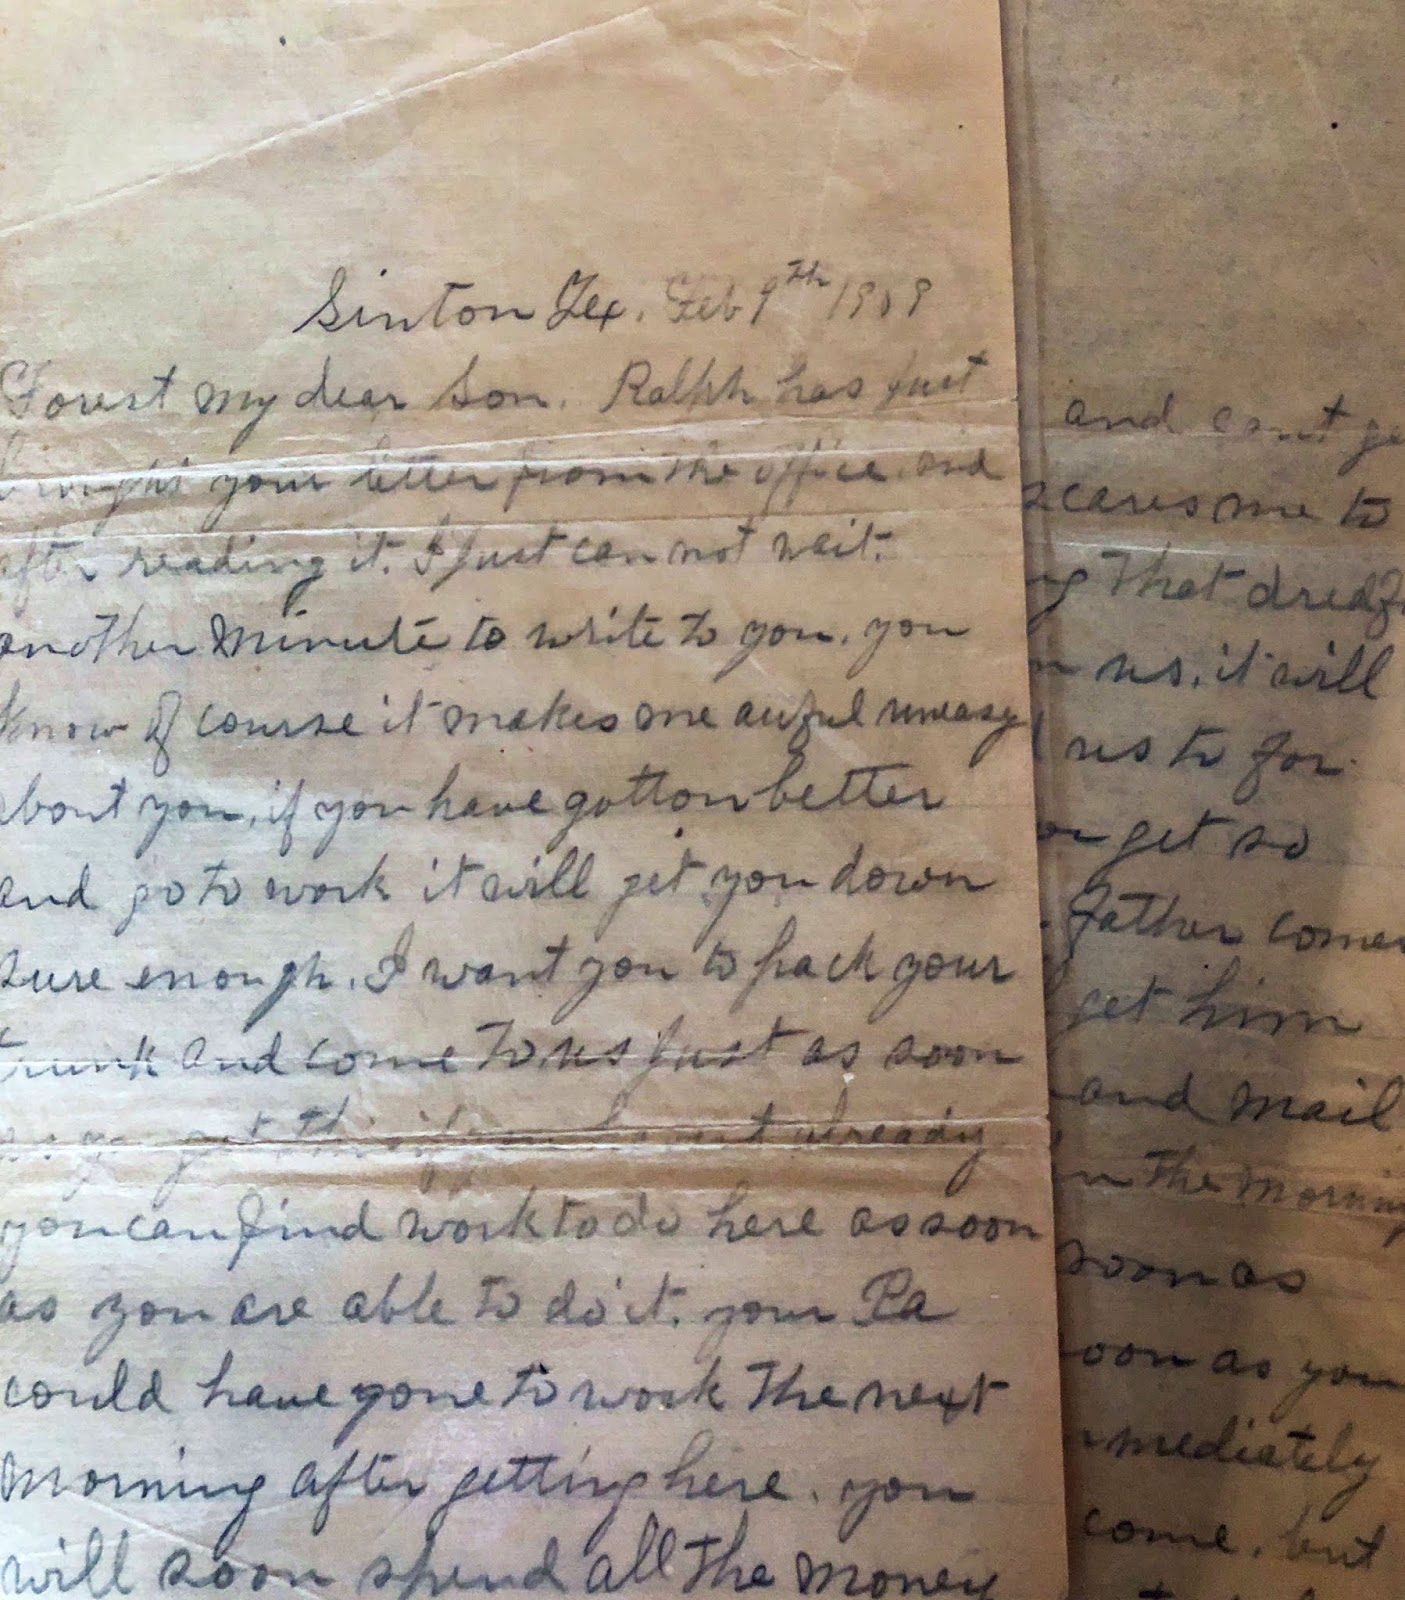 Sinton Tex. Feb 9th 1909
Forest my dear Son. Ralph has just
brought your letter from the office. and
after reading it. I just can not wait.
another minute to write to you. you
know of course it makes me awful uneasy
about you, if you have gotton better
and go to work it will get you down
sure enough. I want you to pack your
trunk and come to us just as soon
as you get this if you havent already
you can find work to do here as soon
as you are able to do it. your Pa
could have gone to work the next
morning after getting here. you
will soon spend all the money
and cant ge
scares me to
that dreadf
us. it will
us to for
get so
father comes
get him
and mail
in the morning
soon as
soon as you
mmediately
come. but